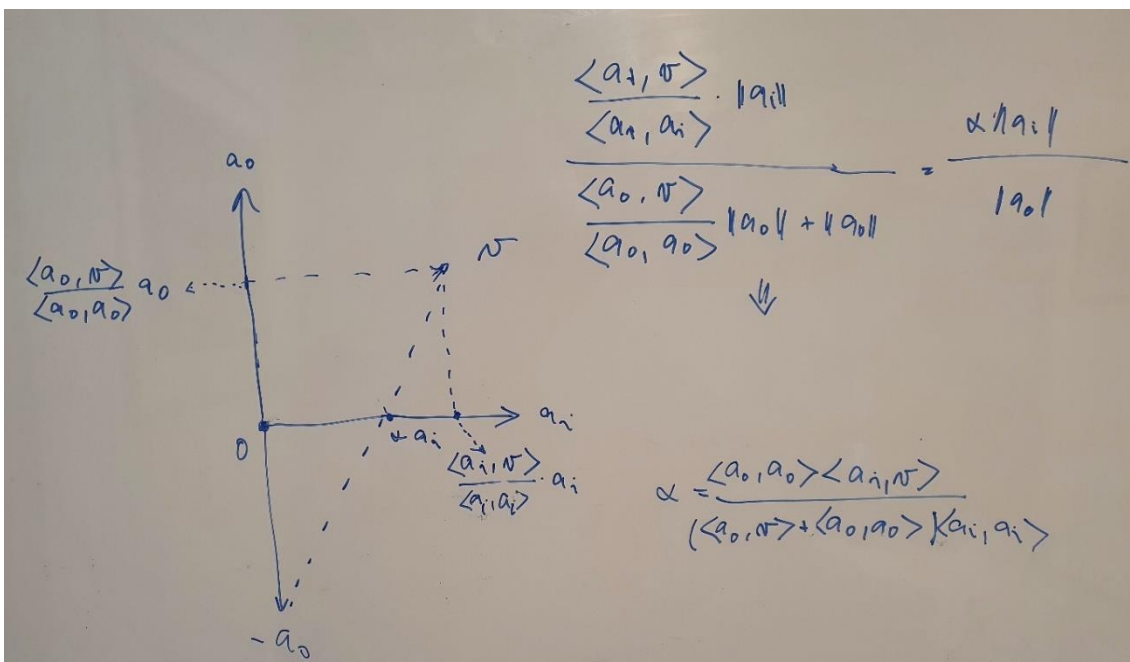 a₀
v
⟨a₀, v⟩
⟨a₀, a₀⟩ a₀
0
α aᵢ
aᵢ
⟨aᵢ, v⟩
⟨aᵢ, aᵢ⟩ · aᵢ
-a₀
⟨aᵢ, v⟩
⟨aᵢ, aᵢ⟩ · ‖aᵢ‖
⟨a₀, v⟩
⟨a₀, a₀⟩ ‖a₀‖ + ‖a₀‖
= α ‖aᵢ‖
‖a₀‖
⇓
α = ⟨a₀, a₀⟩⟨aᵢ, v⟩
(⟨a₀, v⟩ + ⟨a₀, a₀⟩)⟨aᵢ, aᵢ⟩